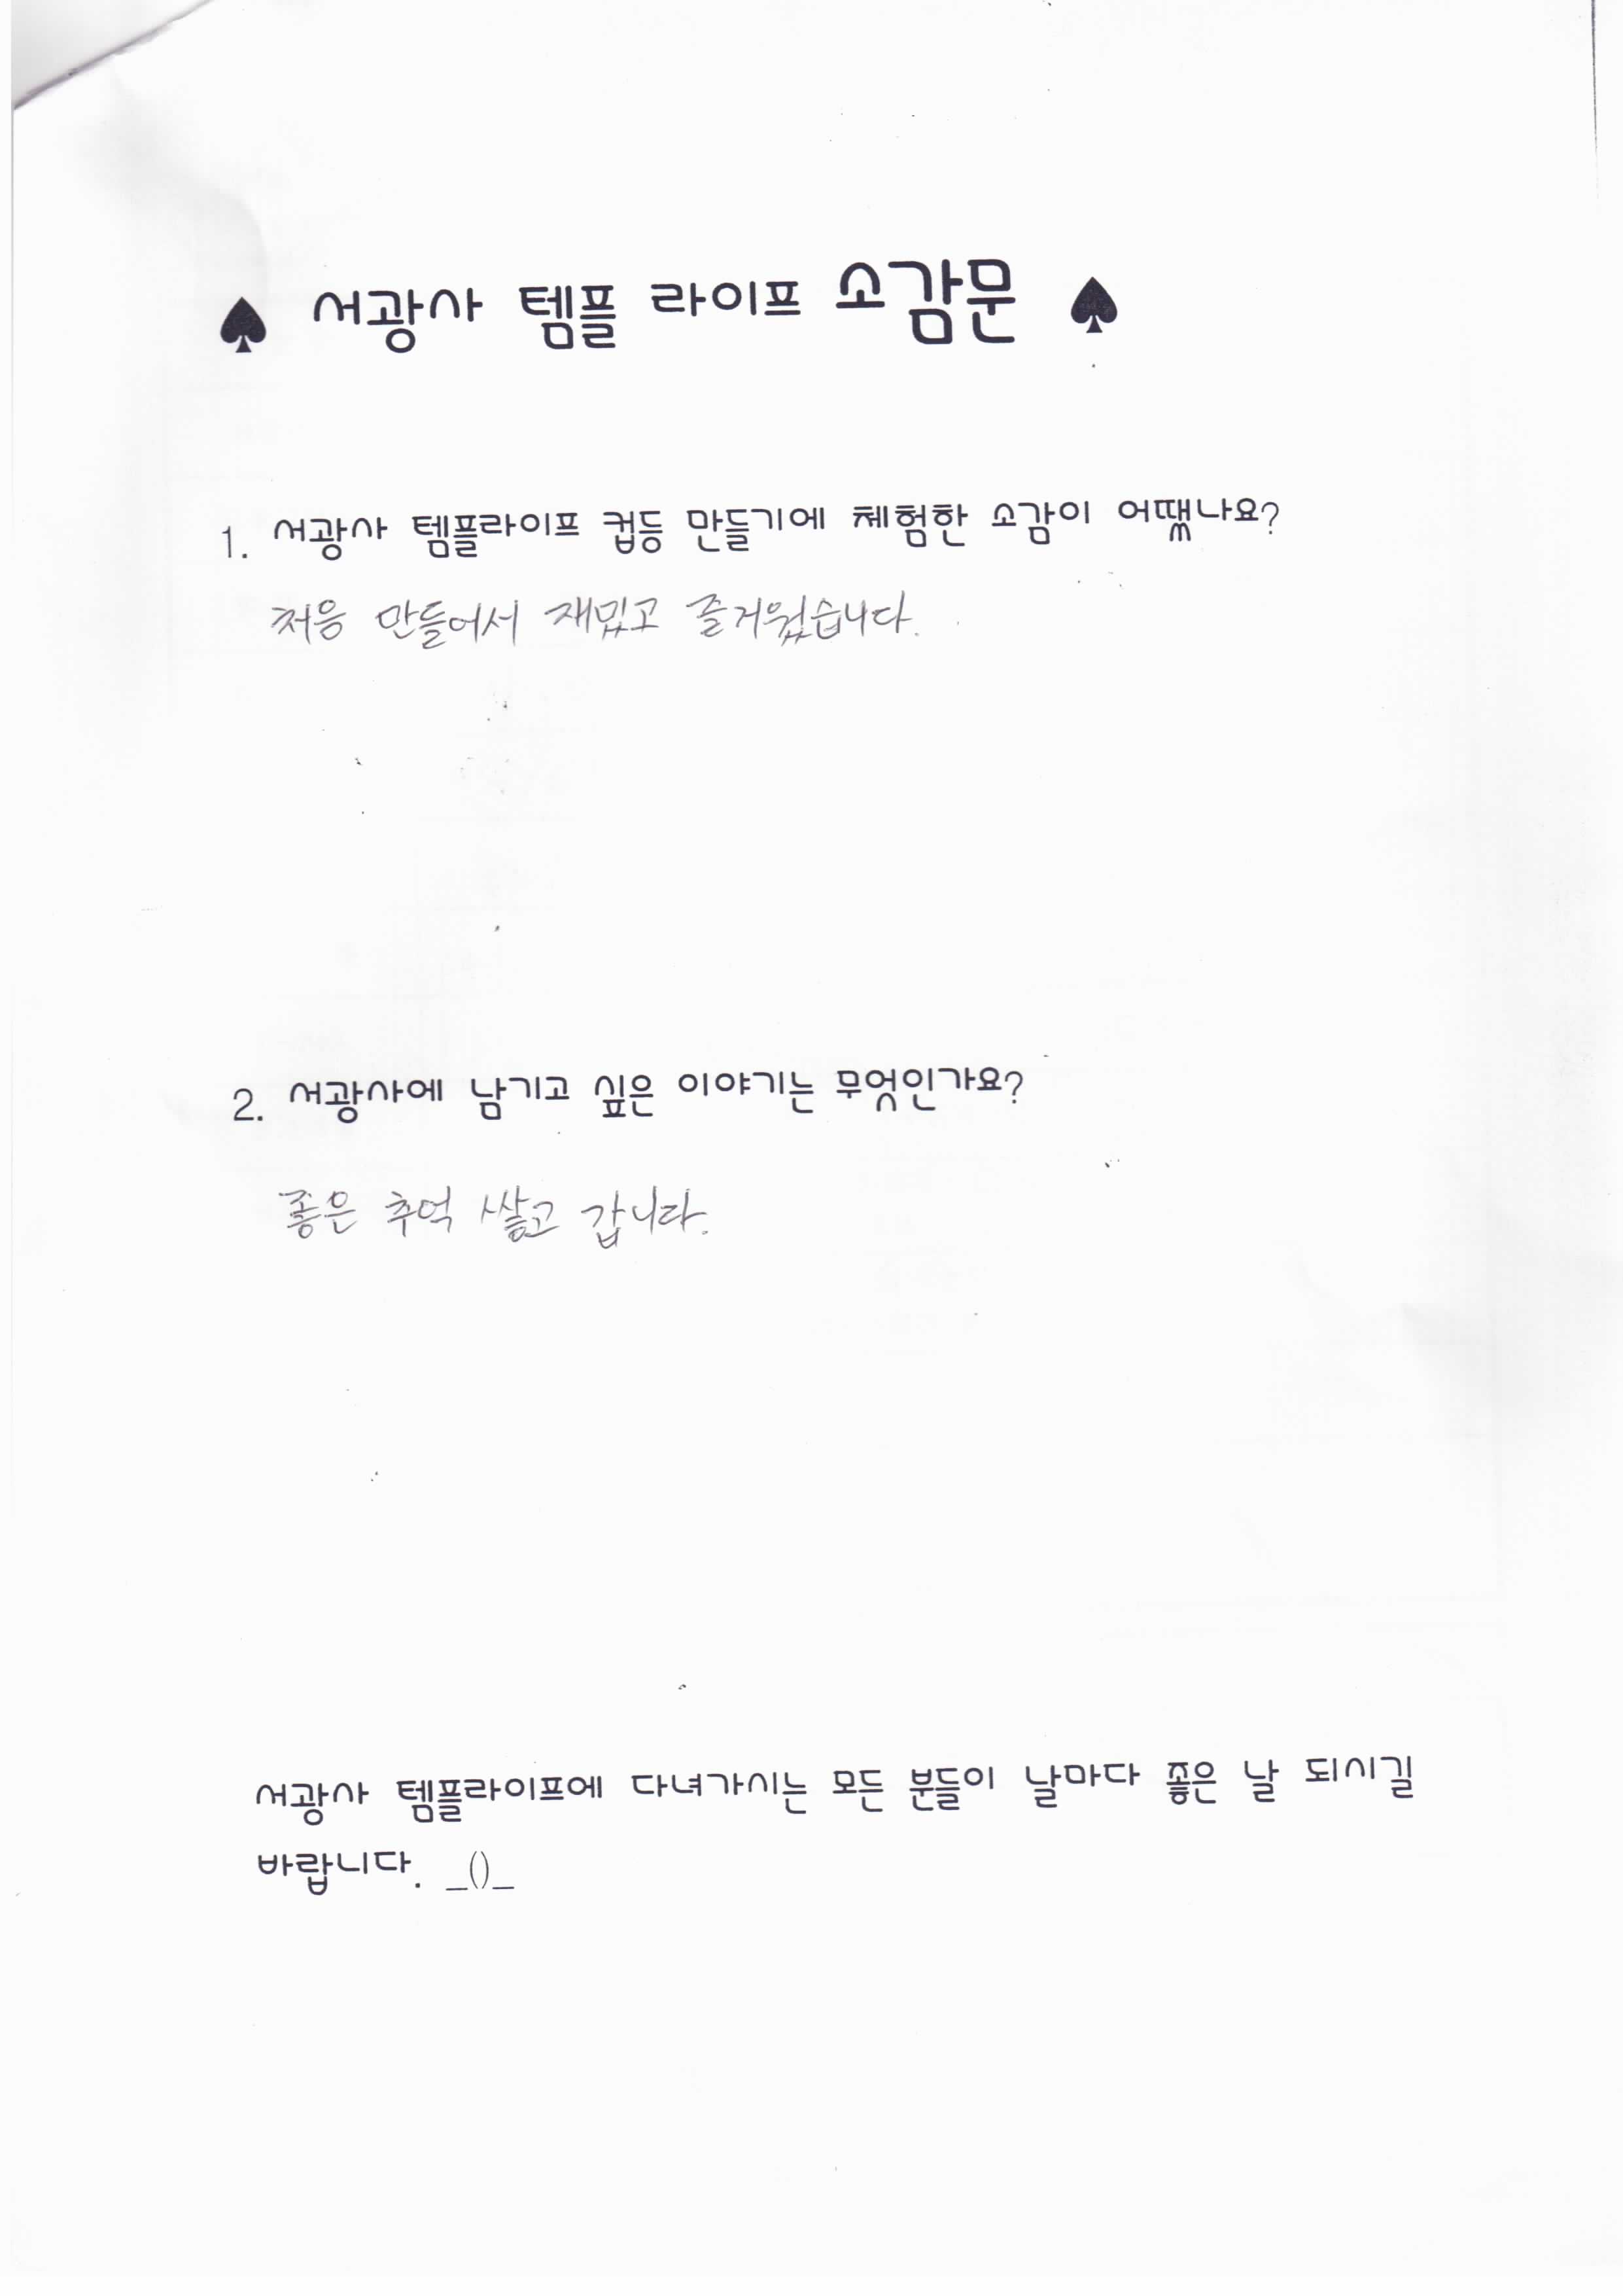 ♠ 서광사 템플 라이프 소감문 ♠
1. 서광사 템플라이프 컵등 만들기에 체험한 소감이 어땠나요?
처음 만들어서 재밌고 즐거웠습니다.
2. 서광사에 남기고 싶은 이야기는 무엇인가요?
좋은 추억 쌓고 갑니다.
서광사 템플라이프에 다녀가시는 모든 분들이 날마다 좋은 날 되시길
바랍니다. _()_